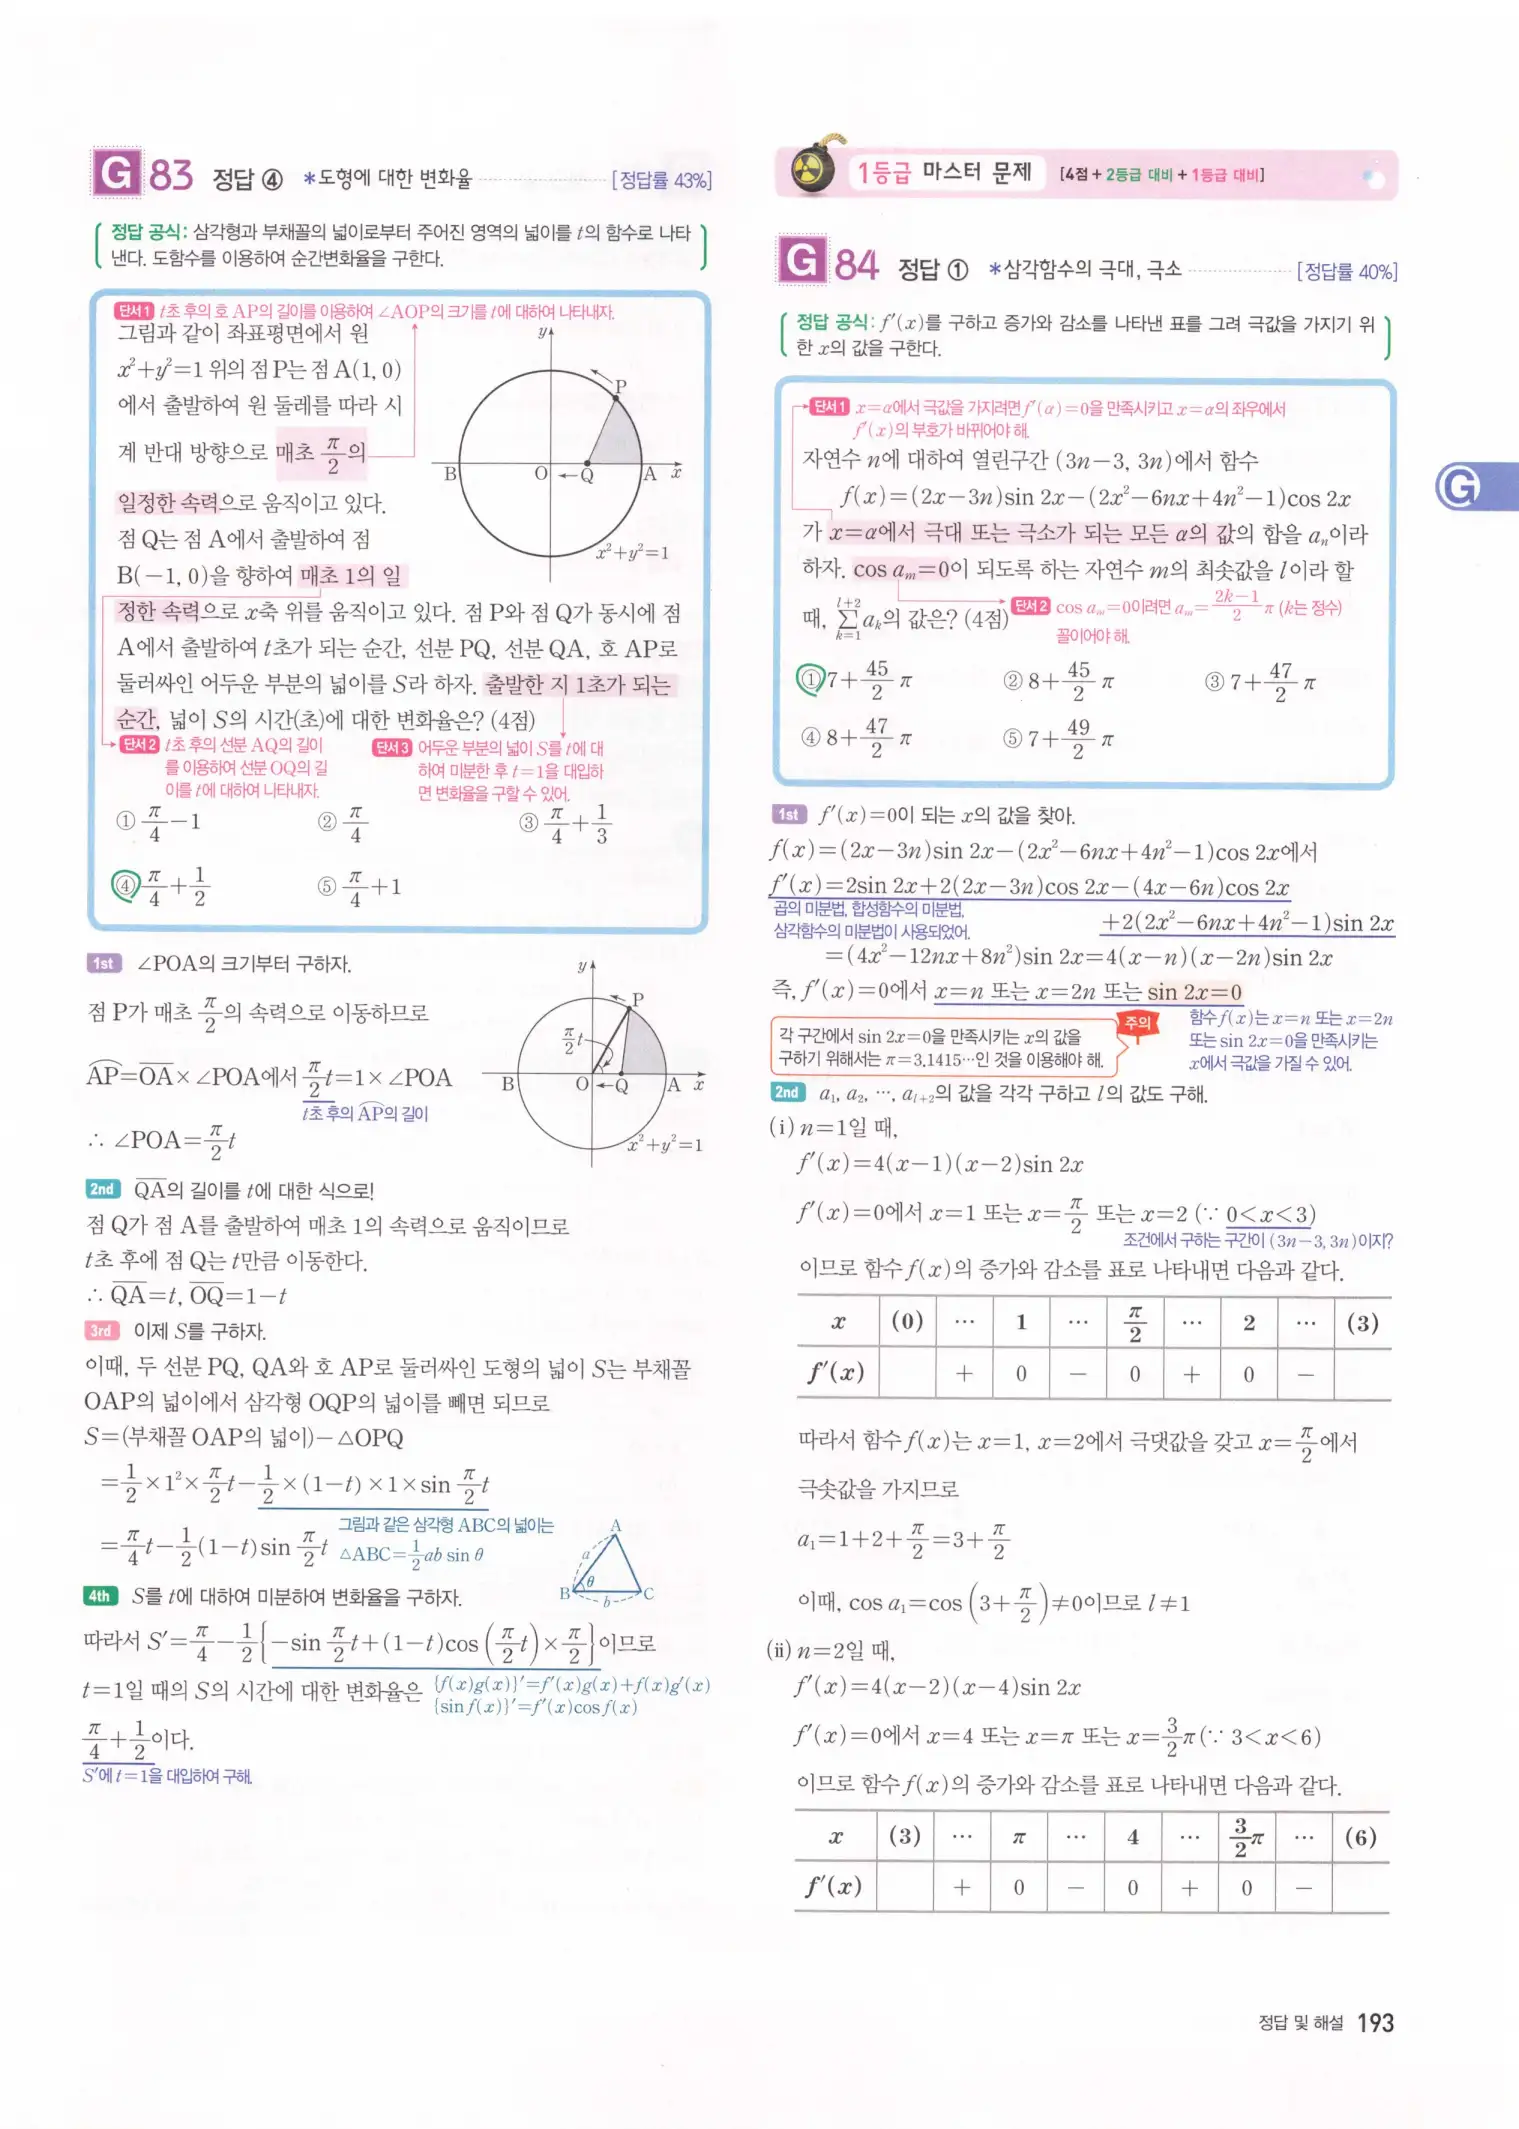 G 83 정답 ④ *도형에 대한 변화율 [정답률 43%]
정답 공식: 삼각형과 부채꼴의 넓이로부터 주어진 영역의 넓이를 t의 함수로 나타
낸다. 도함수를 이용하여 순간변화율을 구한다.
단서1 t초 후의 호 AP의 길이를 이용하여 ∠AOP의 크기를 t에 대하여 나타내자.
그림과 같이 좌표평면에서 원
x²+y²=1 위의 점 P는 점 A(1, 0)
에서 출발하여 원 둘레를 따라 시
계 반대 방향으로 매초 π/2의
일정한 속력으로 움직이고 있다.
점 Q는 점 A에서 출발하여 점
B(-1, 0)을 향하여 매초 1의 일
정한 속력으로 x축 위를 움직이고 있다. 점 P와 점 Q가 동시에 점
A에서 출발하여 t초가 되는 순간, 선분 PQ, 선분 QA, 호 AP로
둘러싸인 어두운 부분의 넓이를 S라 하자. 출발한 지 1초가 되는
순간, 넓이 S의 시간(초)에 대한 변화율은? (4점)
y
P
B O Q A x
x²+y²=1
단서2 t초 후의 선분 AQ의 길이
를 이용하여 선분 OQ의 길
이를 t에 대하여 나타내자.
단서3 어두운 부분의 넓이 S를 t에 대
하여 미분한 후 t=1을 대입하
면 변화율을 구할 수 있어.
① π/4-1 ② π/4 ③ π/4+1/3
④ π/4+1/2 ⑤ π/4+1
1st ∠POA의 크기부터 구하자.
점 P가 매초 π/2의 속력으로 이동하므로
AP=OA×∠POA에서 π/2 t=1×∠POA
t초 후의 AP의 길이
∴ ∠POA=π/2 t
y
P
π/2 t
B O Q A x
x²+y²=1
2nd QA의 길이를 t에 대한 식으로!
점 Q가 점 A를 출발하여 매초 1의 속력으로 움직이므로
t초 후에 점 Q는 t만큼 이동한다.
∴ QA=t, OQ=1-t
3rd 이제 S를 구하자.
이때, 두 선분 PQ, QA와 호 AP로 둘러싸인 도형의 넓이 S는 부채꼴
OAP의 넓이에서 삼각형 OQP의 넓이를 빼면 되므로
S=(부채꼴 OAP의 넓이)-△OPQ
=1/2×1²×π/2 t-1/2×(1-t)×1×sin π/2 t
=π/4 t-1/2(1-t)sin π/2 t
그림과 같은 삼각형 ABC의 넓이는
△ABC=1/2 ab sin θ
A
a
θ
B b C
4th S를 t에 대하여 미분하여 변화율을 구하자.
따라서 S′=π/4-1/2{-sin π/2 t+(1-t)cos(π/2 t)×π/2}이므로
t=1일 때의 S의 시간에 대한 변화율은 {f(x)g(x)}′=f′(x)g(x)+f(x)g′(x)
{sin f(x)}′=f′(x)cos f(x)
π/4+1/2이다.
S′에 t=1을 대입하여 구해.
1등급 마스터 문제 [4점+2등급 대비+1등급 대비]
G 84 정답 ① *삼각함수의 극대, 극소 [정답률 40%]
정답 공식: f′(x)를 구하고 증가와 감소를 나타낸 표를 그려 극값을 가지기 위
한 x의 값을 구한다.
단서1 x=α에서 극값을 가지려면 f′(α)=0을 만족시키고 x=α의 좌우에서
f′(x)의 부호가 바뀌어야 해.
자연수 n에 대하여 열린구간 (3n-3, 3n)에서 함수
f(x)=(2x-3n)sin 2x-(2x²-6nx+4n²-1)cos 2x
가 x=α에서 극대 또는 극소가 되는 모든 α의 값의 합을 aₙ이라
하자. cos aₘ=0이 되도록 하는 자연수 m의 최솟값을 l이라 할
때, ∑(k=1, l+2) aₖ의 값은? (4점) 단서2 cos aₘ=0이려면 aₘ=(2k-1)/2 π (k는 정수)
꼴이어야 해.
① 7+45/2 π ② 8+45/2 π ③ 7+47/2 π
④ 8+47/2 π ⑤ 7+49/2 π
G
1st f′(x)=0이 되는 x의 값을 찾아.
f(x)=(2x-3n)sin 2x-(2x²-6nx+4n²-1)cos 2x에서
f′(x)=2sin 2x+2(2x-3n)cos 2x-(4x-6n)cos 2x
곱의 미분법, 합성함수의 미분법,
삼각함수의 미분법이 사용되었어.
+2(2x²-6nx+4n²-1)sin 2x
=(4x²-12nx+8n²)sin 2x=4(x-n)(x-2n)sin 2x
즉, f′(x)=0에서 x=n 또는 x=2n 또는 sin 2x=0
주의
각 구간에서 sin 2x=0을 만족시키는 x의 값을
구하기 위해서는 π=3.1415…인 것을 이용해야 해.
함수 f(x)는 x=n 또는 x=2n
또는 sin 2x=0을 만족시키는
x에서 극값을 가질 수 있어.
2nd a₁, a₂, …, aₗ₊₂의 값을 각각 구하고 l의 값도 구해.
(i) n=1일 때,
f′(x)=4(x-1)(x-2)sin 2x
f′(x)=0에서 x=1 또는 x=π/2 또는 x=2 (∵ 0<x<3)
조건에서 구하는 구간이 (3n-3, 3n)이지?
이므로 함수 f(x)의 증가와 감소를 표로 나타내면 다음과 같다.
x (0) … 1 … π/2 … 2 … (3)
f′(x) + 0 - 0 + 0 -
따라서 함수 f(x)는 x=1, x=2에서 극댓값을 갖고 x=π/2에서
극솟값을 가지므로
a₁=1+2+π/2=3+π/2
이때, cos a₁=cos(3+π/2)≠0이므로 l≠1
(ii) n=2일 때,
f′(x)=4(x-2)(x-4)sin 2x
f′(x)=0에서 x=4 또는 x=π 또는 x=3/2 π (∵ 3<x<6)
이므로 함수 f(x)의 증가와 감소를 표로 나타내면 다음과 같다.
x (3) … π … 4 … 3/2 π … (6)
f′(x) + 0 - 0 + 0 -
정답 및 해설 193